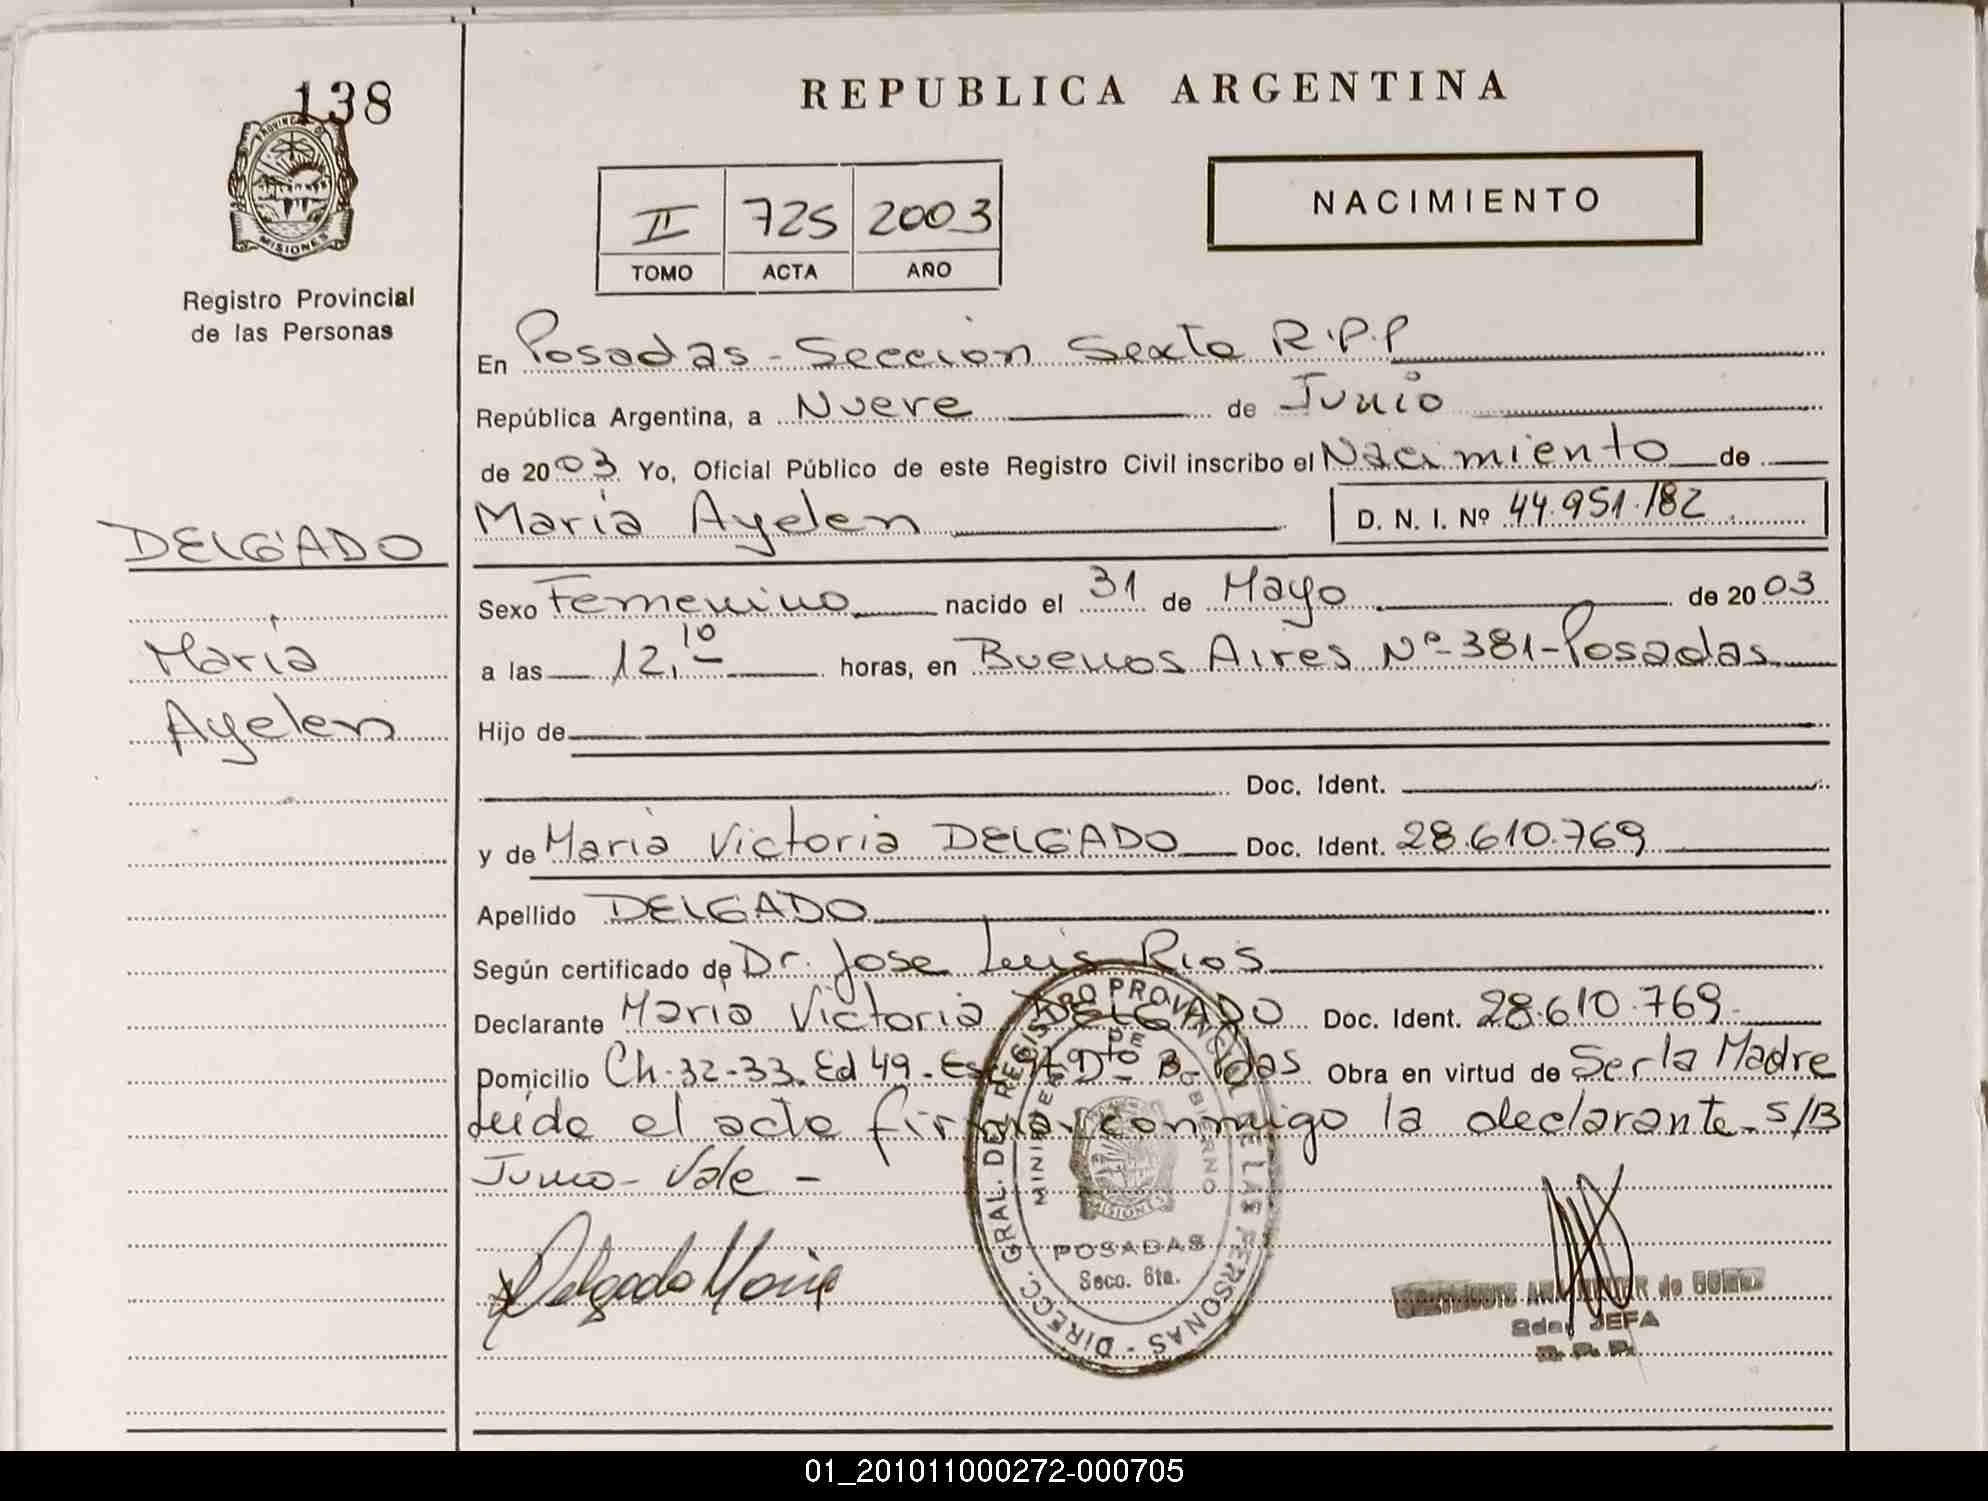 138
PROVINCIA DE
MISIONES
Registro Provincial
de las Personas
REPUBLICA ARGENTINA
NACIMIENTO
II 725 2003
TOMO ACTA AÑO
En Posadas - Seccion Sexta R.P.P
República Argentina, a Nueve de Junio
de 2003 Yo, Oficial Público de este Registro Civil inscribo el Nacimiento de
Maria Ayelen D. N. I. Nº 44.951.182
DELGADO
Maria
Ayelen
Sexo Femenino nacido el 31 de Mayo de 2003
a las 12,10 horas, en Buenos Aires Nº 381 - Posadas
Hijo de
Doc. Ident.
y de Maria Victoria DELGADO Doc. Ident. 28.610.769
Apellido DELGADO
Según certificado de Dr. Jose Luis Rios
Declarante Maria Victoria DELGADO Doc. Ident. 28.610.769
Domicilio Ch. 32-33. Ed 49 - Dto B - Pdas Obra en virtud de Ser la Madre
Leida el acta firma conmigo la declarante - S/B
Junio - Vale -
Delgado Maria
DIRECC. GRAL. DEL REGISTRO PROVINCIAL DE LAS PERSONAS -
MINISTERIO DE GOBIERNO
MISIONES
POSADAS
Secc. 6ta.
de
JEFA
R. P. P.
01_201011000272-000705